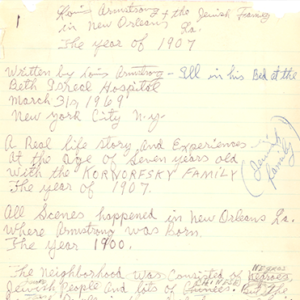 1
Louis Armstrong + the Jewish Family
in New Orleans La.
The year of 1907
Written by Louis Armstrong - Ill in his Bed at the
Beth Israel Hospital
March 31, 1969
New York City N.Y.
A Real life story and Experiences
At the age of Seven years old
With the KORNOFSKY FAMILY
The year of 1907.
(Jewish Family)
All Scenes happened in New Orleans La.
Where Armstrong was Born
The Year 1900.
The Neighborhood was Consisted of Negroes
Jewish People and lots of Chinese. But the
CHINESE